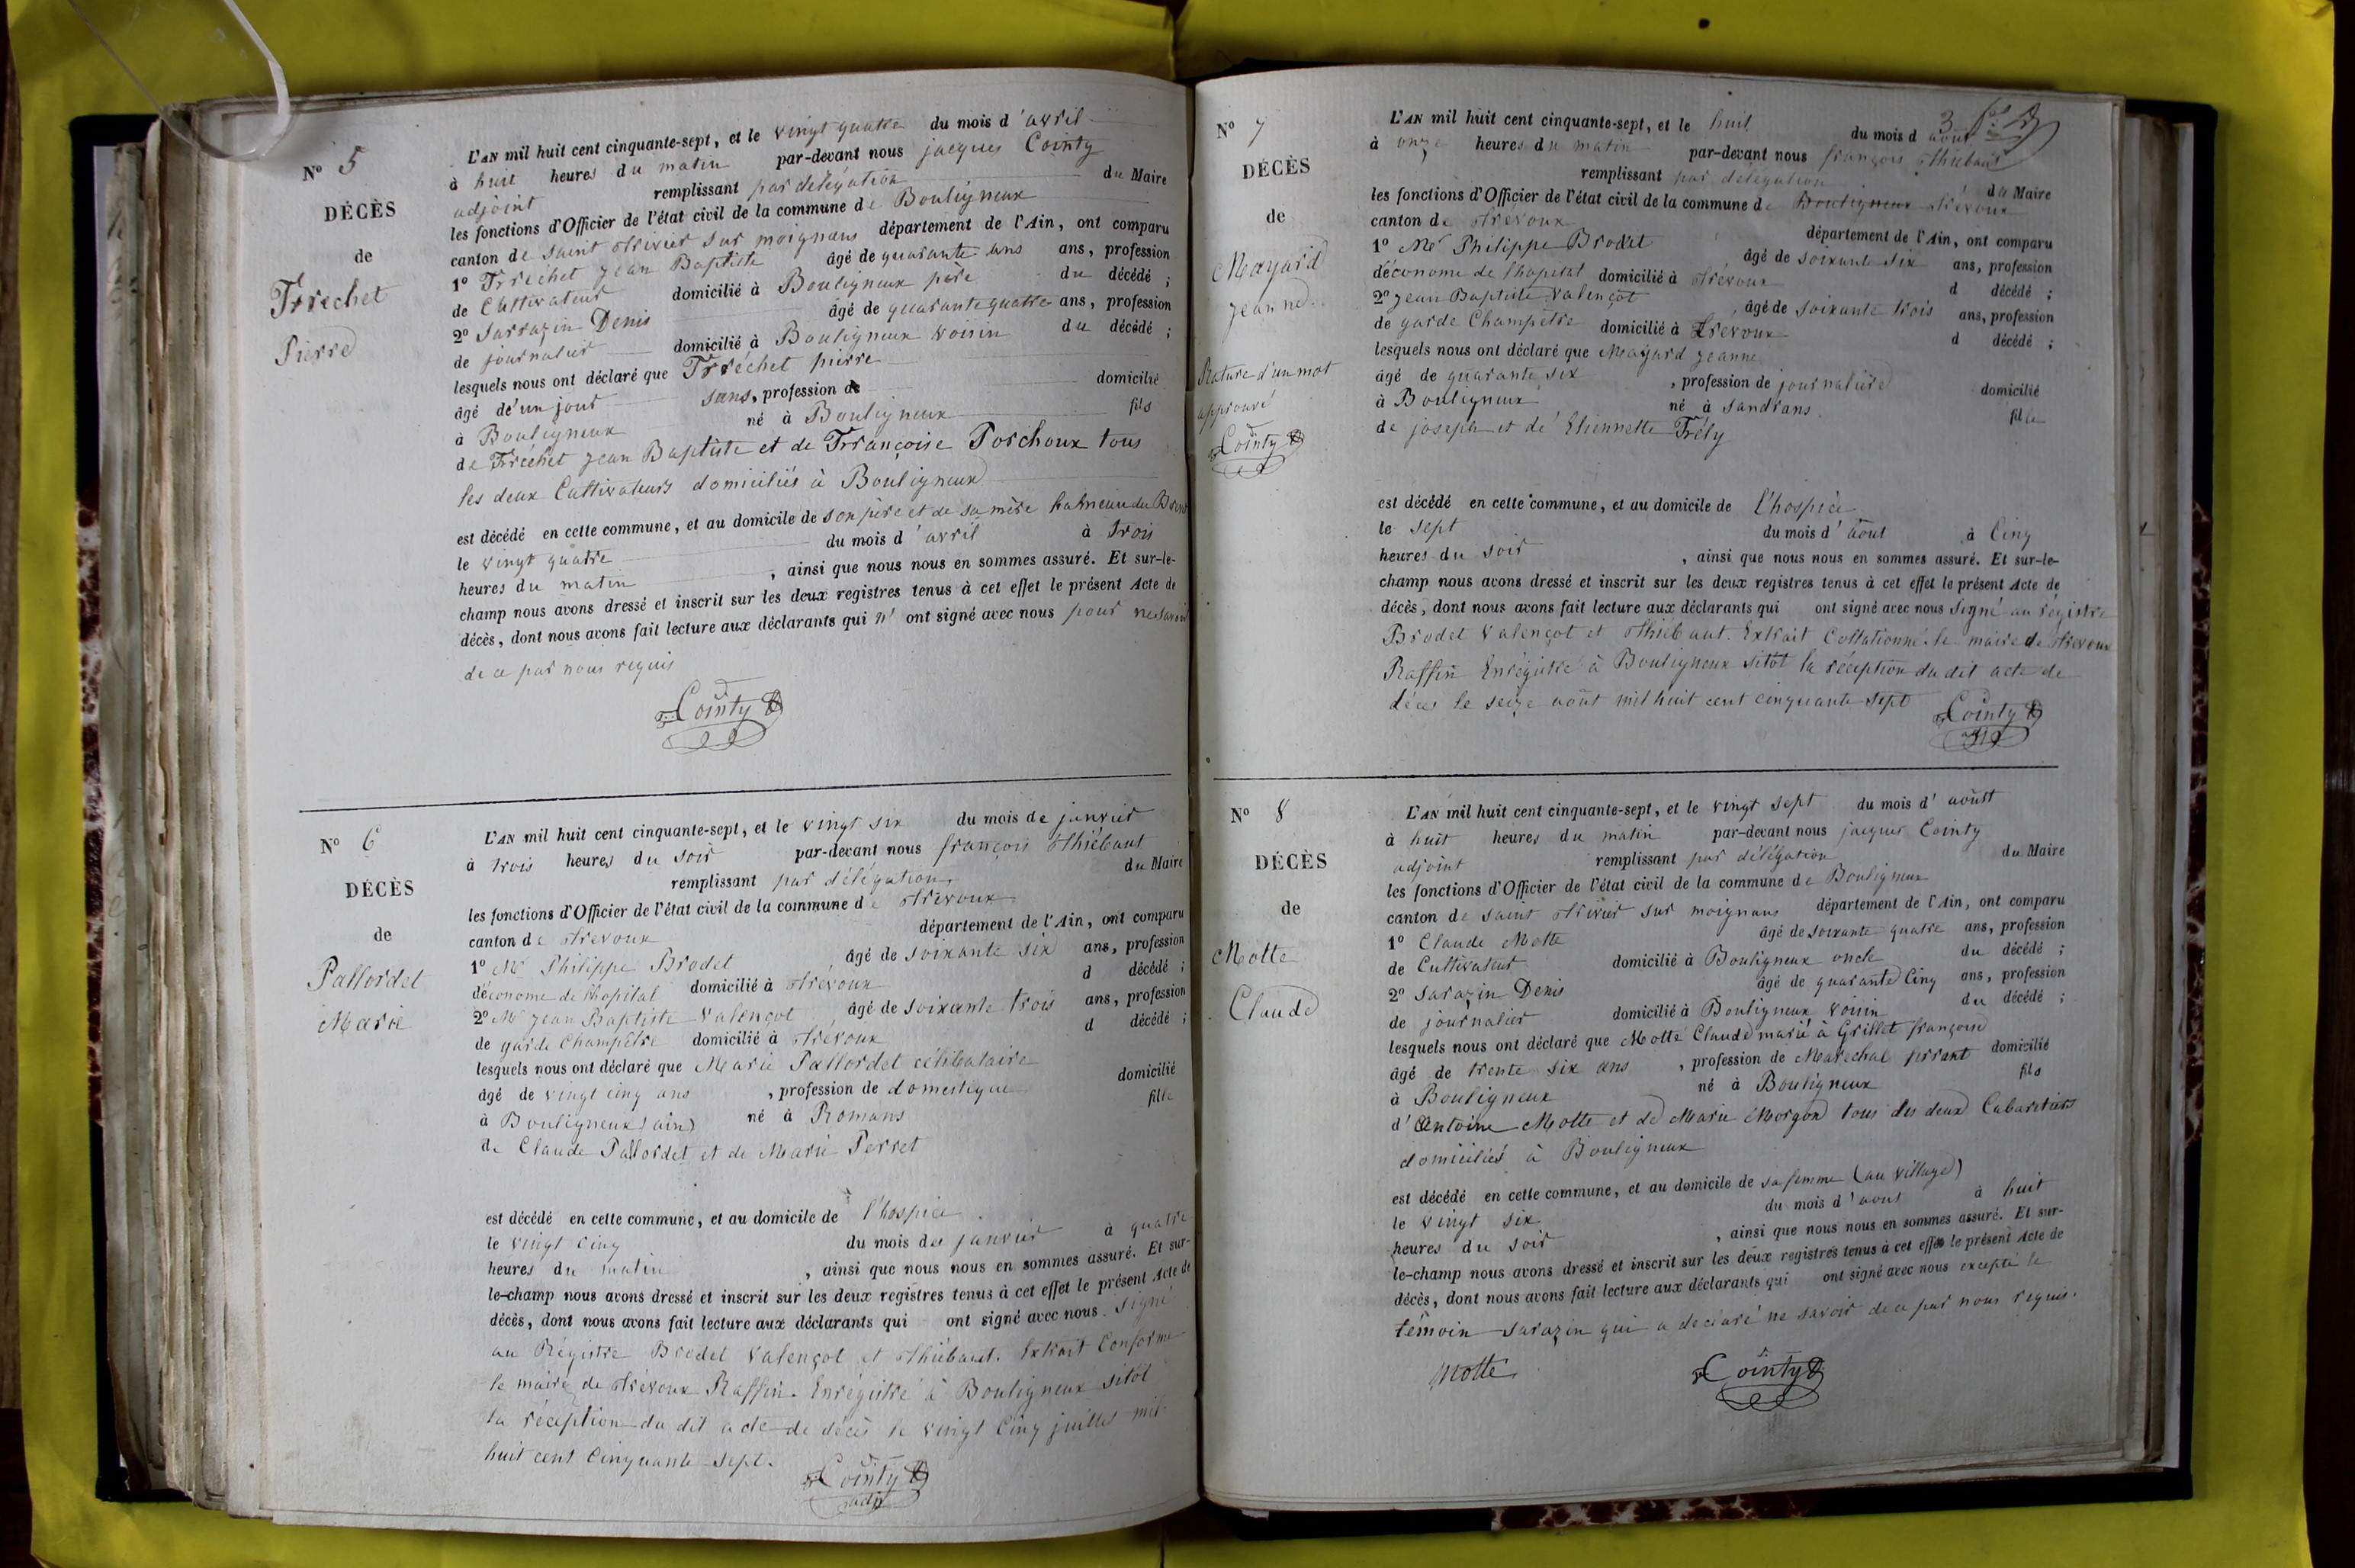 N° 5
DÉCÈS
de
Frrechet
Pierre
L'AN mil huit cent cinquante-sept, et le vingt quatre du mois d'avril
à huit heures du matin par-devant nous jacques Cointy
adjoint remplissant par délégation du Maire
les fonctions d'Officier de l'état civil de la commune de Bouligneux
canton de saint Trivier sur moignans département de l'Ain, ont comparu
1° Frrechet jean Baptiste âgé de quarante ans ans, profession
de Cultivateur domicilié à Bouligneux père du décédé ;
2° Sarrazin Denis âgé de quarante quatre ans, profession
de journalier domicilié à Bouligneux voisin du décédé ;
lesquels nous ont déclaré que Frréchet pierre
âgé de'un jour sans, profession de domicilié
à Bouligneux né à Bouligneux fils
de Frréchet jean Baptiste et de Frrançoise Porchoux tous
les deux Cultivateurs domiciliés à Bouligneux
est décédé en cette commune, et au domicile de son père et de sa mère hameau du
le vingt quatre du mois d'avril à trois
heures du matin , ainsi que nous nous en sommes assuré. Et sur-le-
champ nous avons dressé et inscrit sur les deux registres tenus à cet effet le présent Acte de
décès, dont nous avons fait lecture aux déclarants qui n' ont signé avec nous pour ne savoir
de ce par nous requis
Cointy
N° 6
DÉCÈS
de
Pallordet
Marie
L'AN mil huit cent cinquante-sept, et le vingt six du mois de janvier
à trois heures du soir par-devant nous françois Thiébaut
remplissant par délégation du Maire
les fonctions d'Officier de l'état civil de la commune de Trévoux
canton de Trevoux département de l'Ain, ont comparu
1° Mr Philippe Brodet âgé de soixante six ans, profession
d'économe de l'hopital domicilié à Trévoux d décédé ;
2° Mr jean Baptiste Valençot âgé de soixante trois ans, profession
de garde Champêtre domicilié à Trévoux d décédé ;
lesquels nous ont déclaré que Marie Pallordet célibataire
âgé de vingt cinq ans , profession de domestique domicilié
à Bouligneux (ain) né à Romans fille
de Claude Pallordet et de Marie Perret
est décédé en cette commune, et au domicile de l'hospice
le vingt cinq du mois de janvier à quatre
heures du matin , ainsi que nous nous en sommes assuré. Et sur-
le-champ nous avons dressé et inscrit sur les deux registres tenus à cet effet le présent Acte de
décès, dont nous avons fait lecture aux déclarants qui ont signé avec nous. signé
au Régistre Brodet Valençot et Thiébaut. Extrait Conforme
le maire de Trévoux Raffin. Enrégistré à Bouligneux sitôt
la réception du dit acte de décès le vingt cinq juillet mil
huit cent cinquante sept.
Cointy
adjt
3
N° 7
DÉCÈS
de
Mayard
jeanne
Rature d'un mot
approuvé
Cointy
L'AN mil huit cent cinquante-sept, et le huit du mois d août
à onze heures du matin par-devant nous françois Thiébaut
remplissant par délégation du Maire
les fonctions d'Officier de l'état civil de la commune de Bouligneux Trévoux
canton de Trévoux département de l'Ain, ont comparu
1° Mr Philippe Brodet âgé de soixante six ans, profession
d'économe de l'hopital domicilié à Trévoux d décédé ;
2° jean Baptiste Valençot âgé de soixante trois ans, profession
de garde Champêtre domicilié à Trevoux d décédé ;
lesquels nous ont déclaré que Mayard jeanne
âgé de quarante six , profession de journalière domicilié
à Bouligneux né à Sandrans fille
de joseph et de Etiennette Frély
est décédé en cette commune, et au domicile de l'hospice
le sept du mois d'août à Cinq
heures du soir , ainsi que nous nous en sommes assuré. Et sur-le-
champ nous avons dressé et inscrit sur les deux registres tenus à cet effet le présent Acte de
décès, dont nous avons fait lecture aux déclarants qui ont signé avec nous signé au régistre
Brodet Valençot et Thiébaut. Extrait Collationné. le maire de Trevoux
Raffin Enrégistré à Bouligneux sitôt la réception du dit acte de
décès le seize août mil huit cent cinquante sept
Cointy
N° 8
DÉCÈS
de
Motte
Claude
L'AN mil huit cent cinquante-sept, et le vingt sept du mois d'août
à huit heures du matin par-devant nous jacques Cointy
adjoint remplissant par délégation du Maire
les fonctions d'Officier de l'état civil de la commune de Bouligneux
canton de saint Trivier sur moignans département de l'Ain, ont comparu
1° Claude Motte âgé de soixante quatre ans, profession
de Cultivateur domicilié à Bouligneux oncle du décédé ;
2° sarazin Denis âgé de quarante Cinq ans, profession
de journalier domicilié à Bouligneux voisin du décédé ;
lesquels nous ont déclaré que Motte Claude marié à Grillet françoise
âgé de trente six ans , profession de Marechal ferrant domicilié
à Bouligneux né à Bouligneux fils
d'Antoine Motte et de Marie Morgon tous les deux Cabaretiers
domiciliés à Bouligneux
est décédé en cette commune, et au domicile de sa femme (au village)
le vingt six du mois d'aout à huit
heures du soir , ainsi que nous nous en sommes assuré. Et sur-
le-champ nous avons dressé et inscrit sur les deux registres tenus à cet effet le présent Acte de
décès, dont nous avons fait lecture aux déclarants qui ont signé avec nous excepté le
témoin sarazin qui a declaré ne savoir de ce par nous requis.
Motte
Cointy